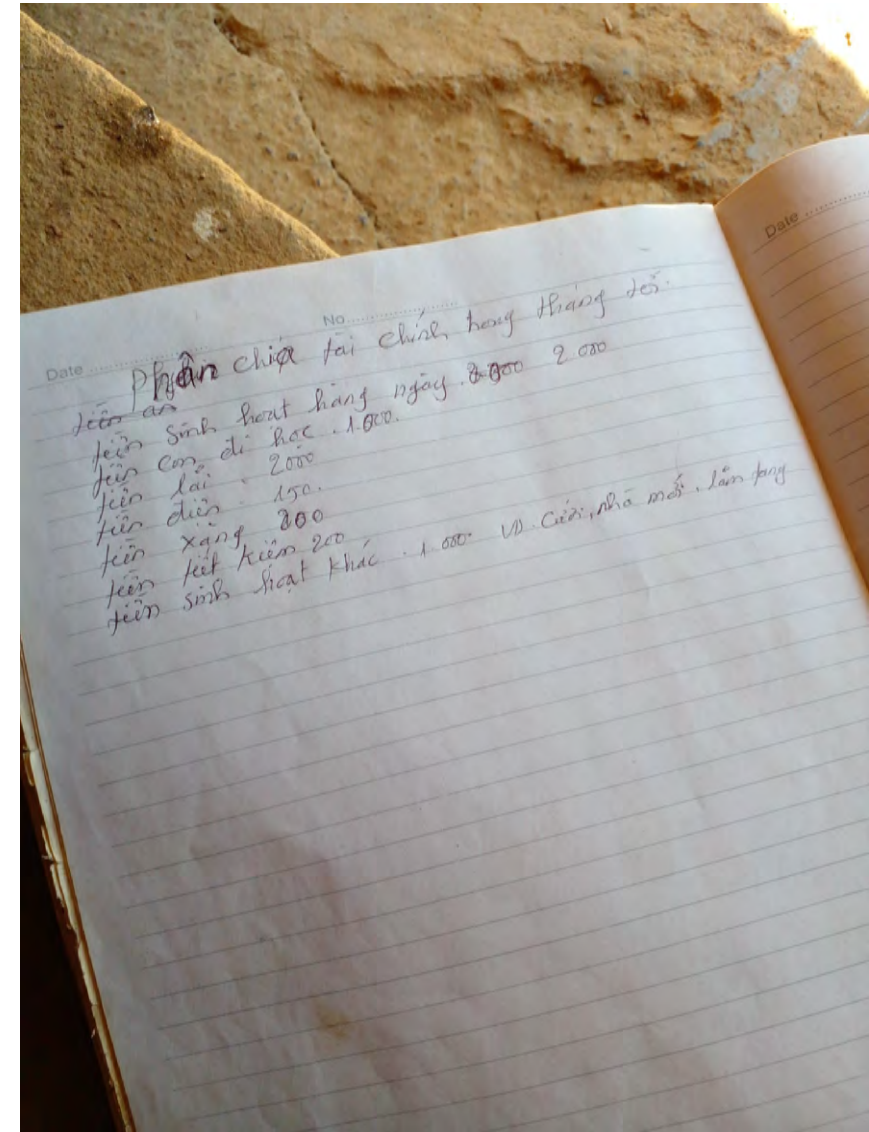 Date
No
Date
Phân chia tài chính trong tháng tới.
tiền ăn
tiền sinh hoạt hàng ngày. 2 000
tiền con đi học. 1.000.
tiền lãi : 2000
tiền điện : 150.
tiền xăng 200
tiền tiết kiệm 200
tiền sinh hoạt khác. 1.000. VD. Cưới, nhà mới. lám tang